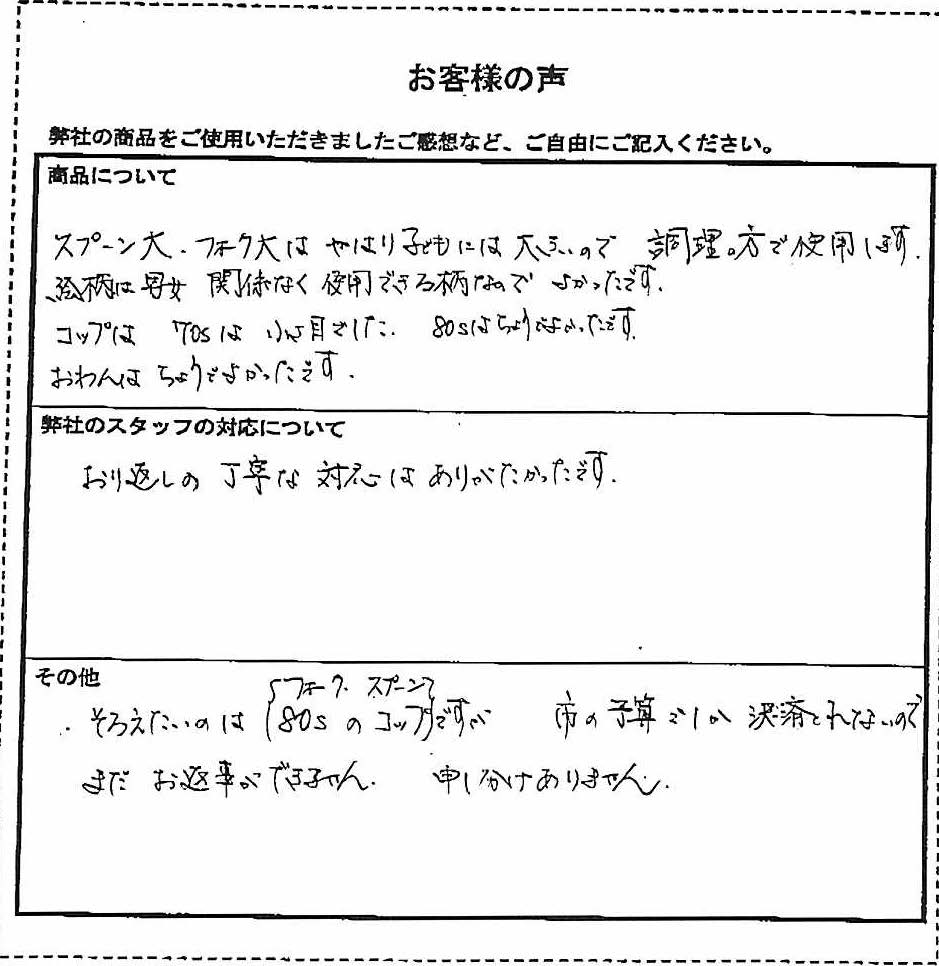 お客様の声
弊社の商品をご使用いただきましたご感想など、ご自由にご記入ください。
商品について
スプーン大・フォーク大は やはり子どもには大きいので 調理の方で使用します.
絵柄は男女 関係なく 使用できる柄なので よかったです.
コップは 70sは 小さ目でした. 80sはちょうどよかったです.
おわんは ちょうどよかったです.
弊社のスタッフの対応について
おり返しの 丁寧な 対応は ありがたかったです.
その他
フォーク・スプーン
・そろえたいのは 80s の コップですが 市の予算でしか 決済とれないので
まだ お返事ができません. 申し分けありません.